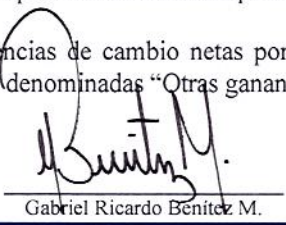 ncias de cambio netas por
denominadas "Otras ganan
Benitez M.
Gabriel Ricardo Benítez M.